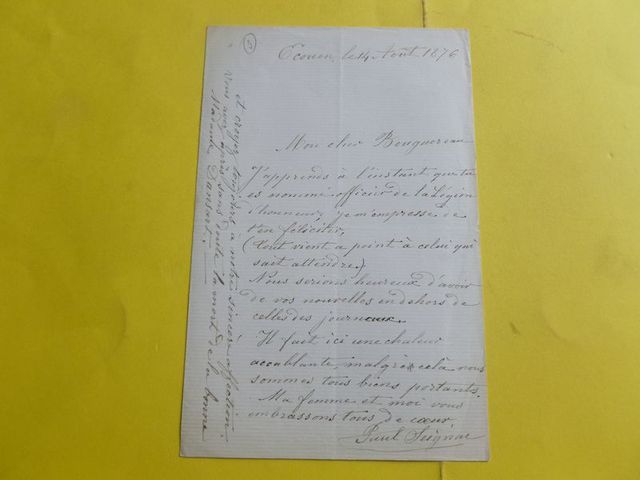 Ecouen, le 14 Aout 1876
Mon cher Bouguereau
J'apprends à l'instant que tu
es nommé officier de la Légion
d'honneur, je m'empresse de
t'en féliciter,
(tout vient a point à celui qui
sait attendre.)
Nous serions heureux d'avoir
de vos nouvelles en dehors de
celles des journaux.
Il fait ici une chaleur
accablante, malgré celà nous
sommes tous biens portants.
Ma femme et moi vous
embrassons tous de cœur
Paul Seignac
et croyez toujours à notre sincère affection.
Vous avez appris sans doute la mort de la bonne
Dansaert.